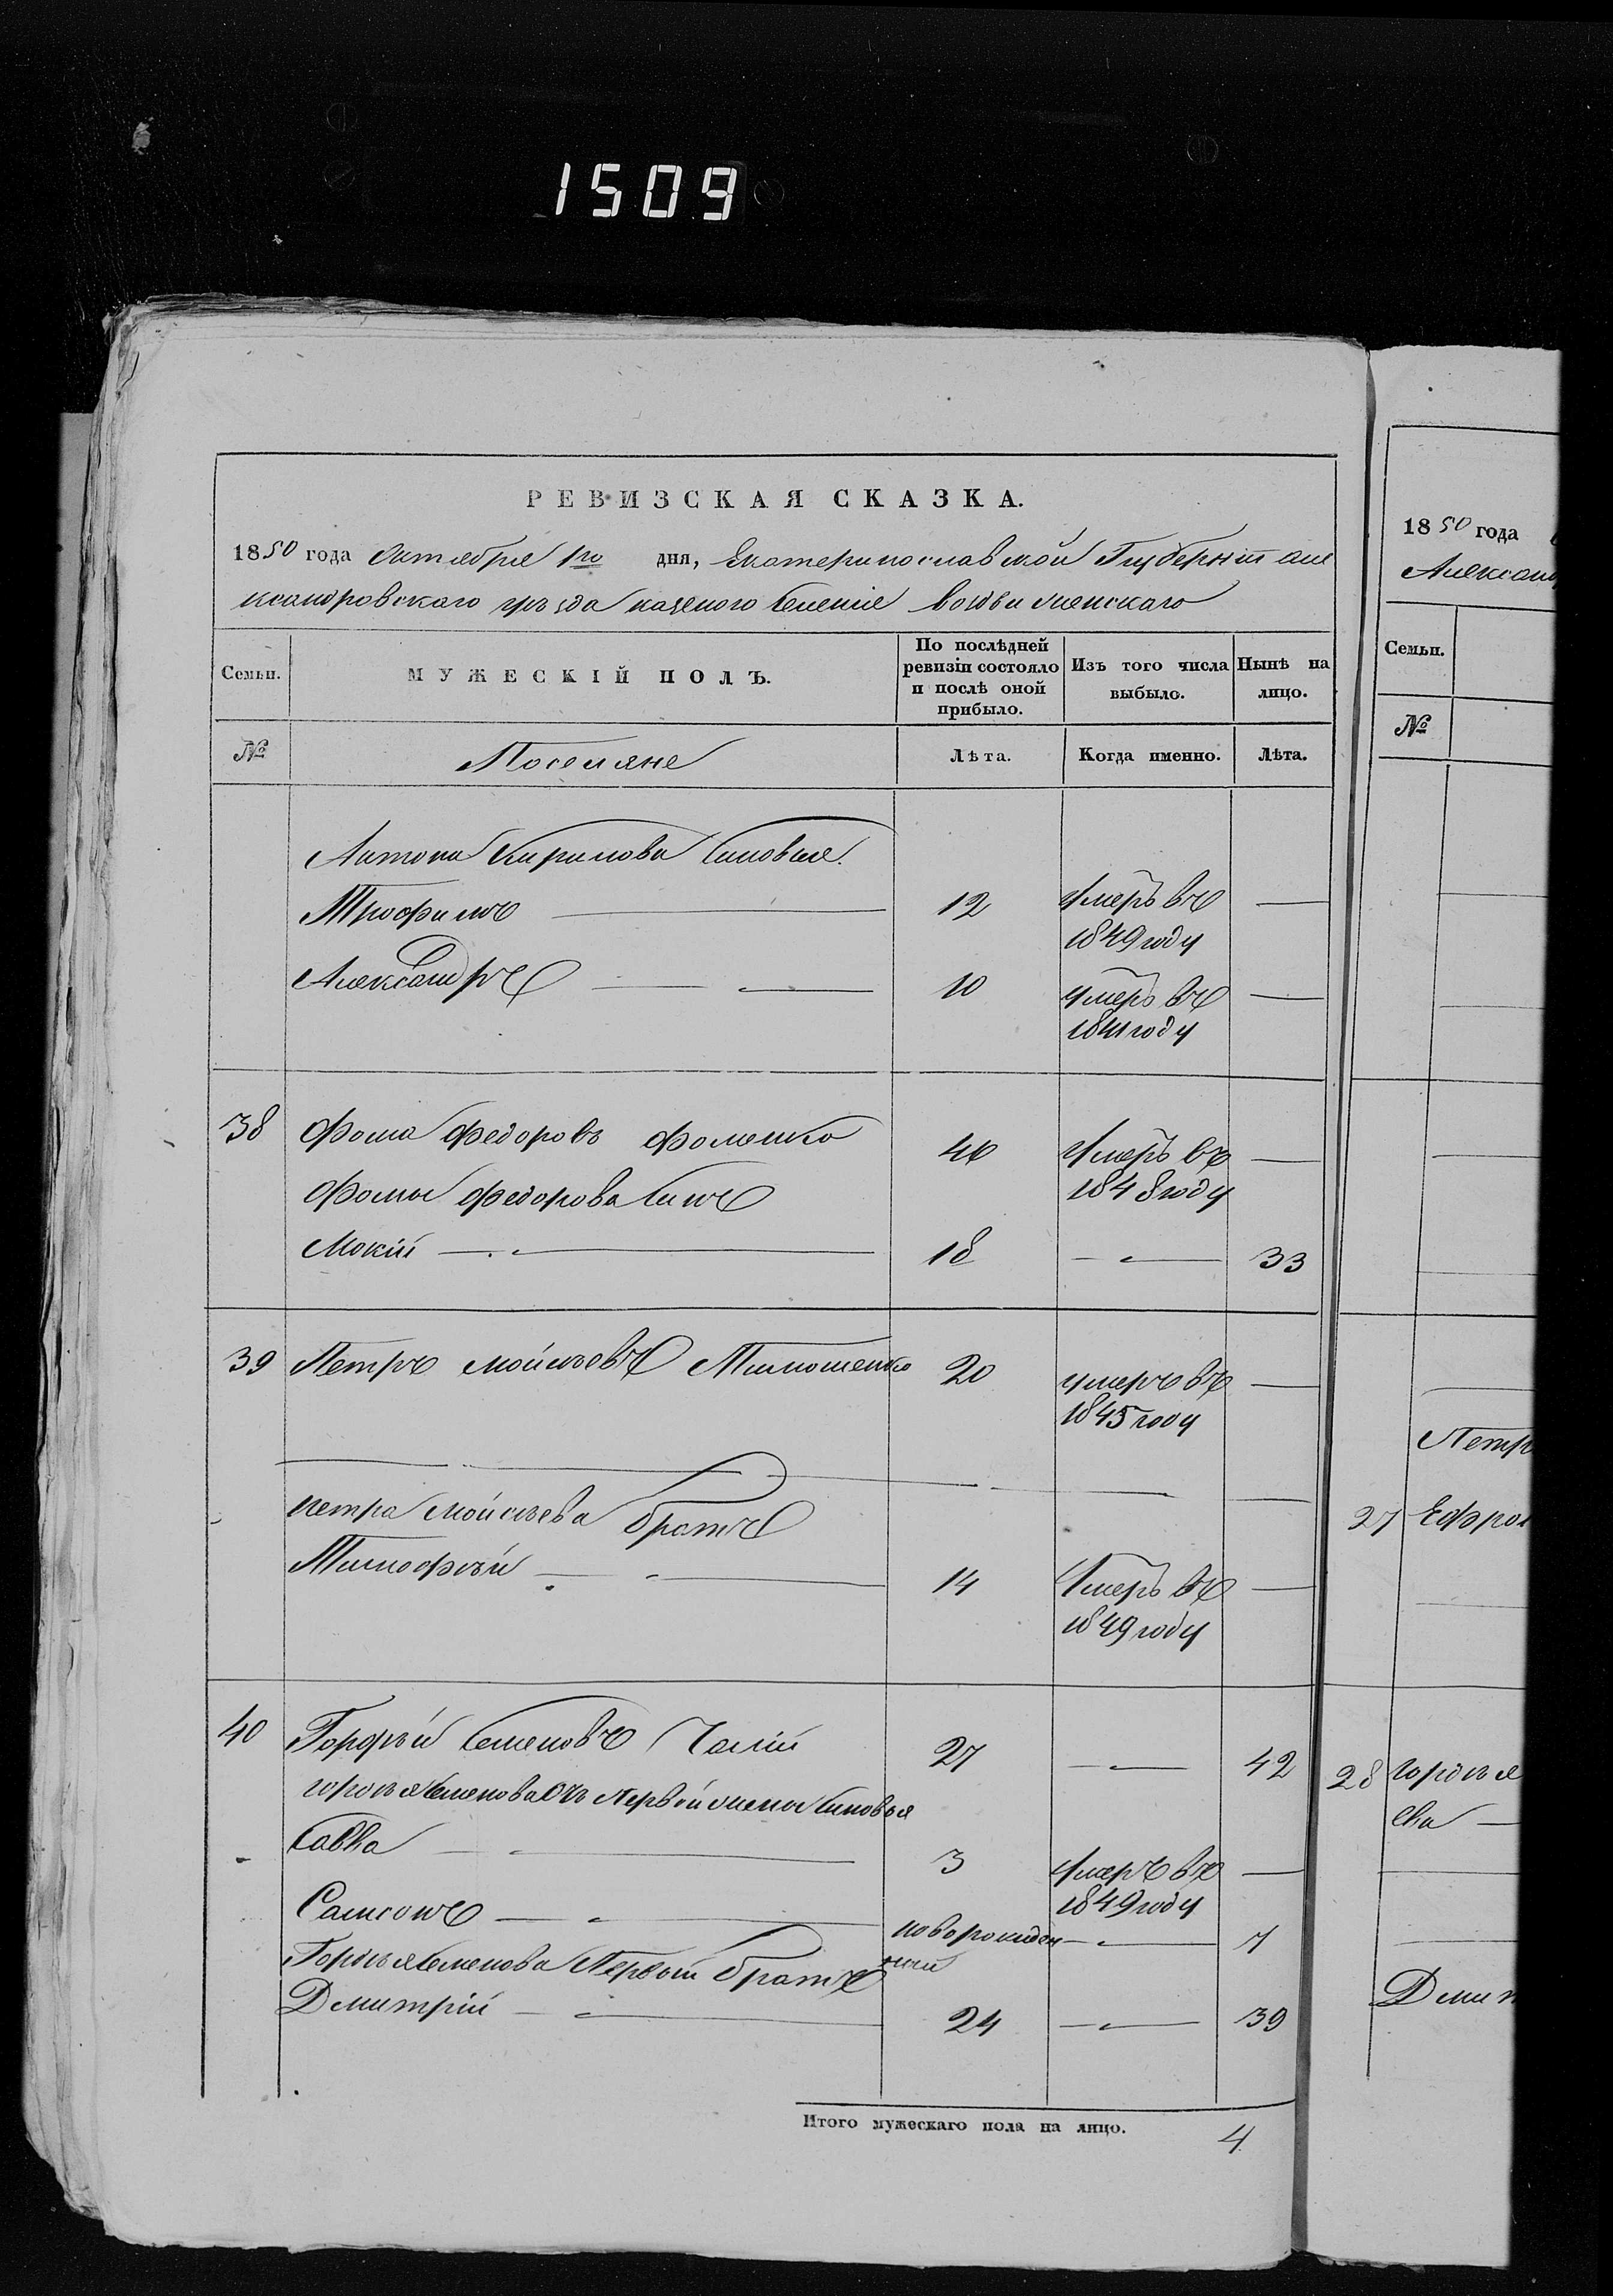 1509
РЕВИЗСКАЯ СКАЗКА.
1850 года Октября 1го дня, Екатеринославской Губерніи Але
ксандровскаго уѣзда казеного Селенія Воздвиженскаго
Семьи.
МУЖЕСКІЙ ПОЛЪ.
По послѣдней ревизіи состояло и послѣ оной прибыло.
Изъ того числа выбыло.
Нынѣ на лицо.
№
Поселяне
Лѣта.
Когда именно.
Лѣта.
Антона Кирилова Синовья.
Трофимъ — 12 Умеръ въ —
1849 году
Александръ — — 10 умеръ въ —
1841 году
38 Фома Федоровъ Фоменко 46 Умеръ въ —
Фомы Федорова Синъ 1848 году
Мокій — 18 — 33
39 Петръ Мойсѣевъ Тимошенко 20 умеръ въ —
1845 году
Петра Мойсѣева братъ
Тимофѣй — 14 Умеръ въ —
1849 году
40 Гордѣй Семеновъ Чалій 27 — 42
Гордѣя Семенова Отъ Первой жены Синовья
Савка — 3 Умеръ въ —
1849 году
Самсонъ — новорожден — 7
ный
Гордѣя Семенова Первый братъ
Дмитрій — 24 — 39
Итого мужескаго пола на лицо. 4
1850 года
Александ
Семьи.
№
Петр
27 Ефрос
28 Гордѣя
ева —
Дмит